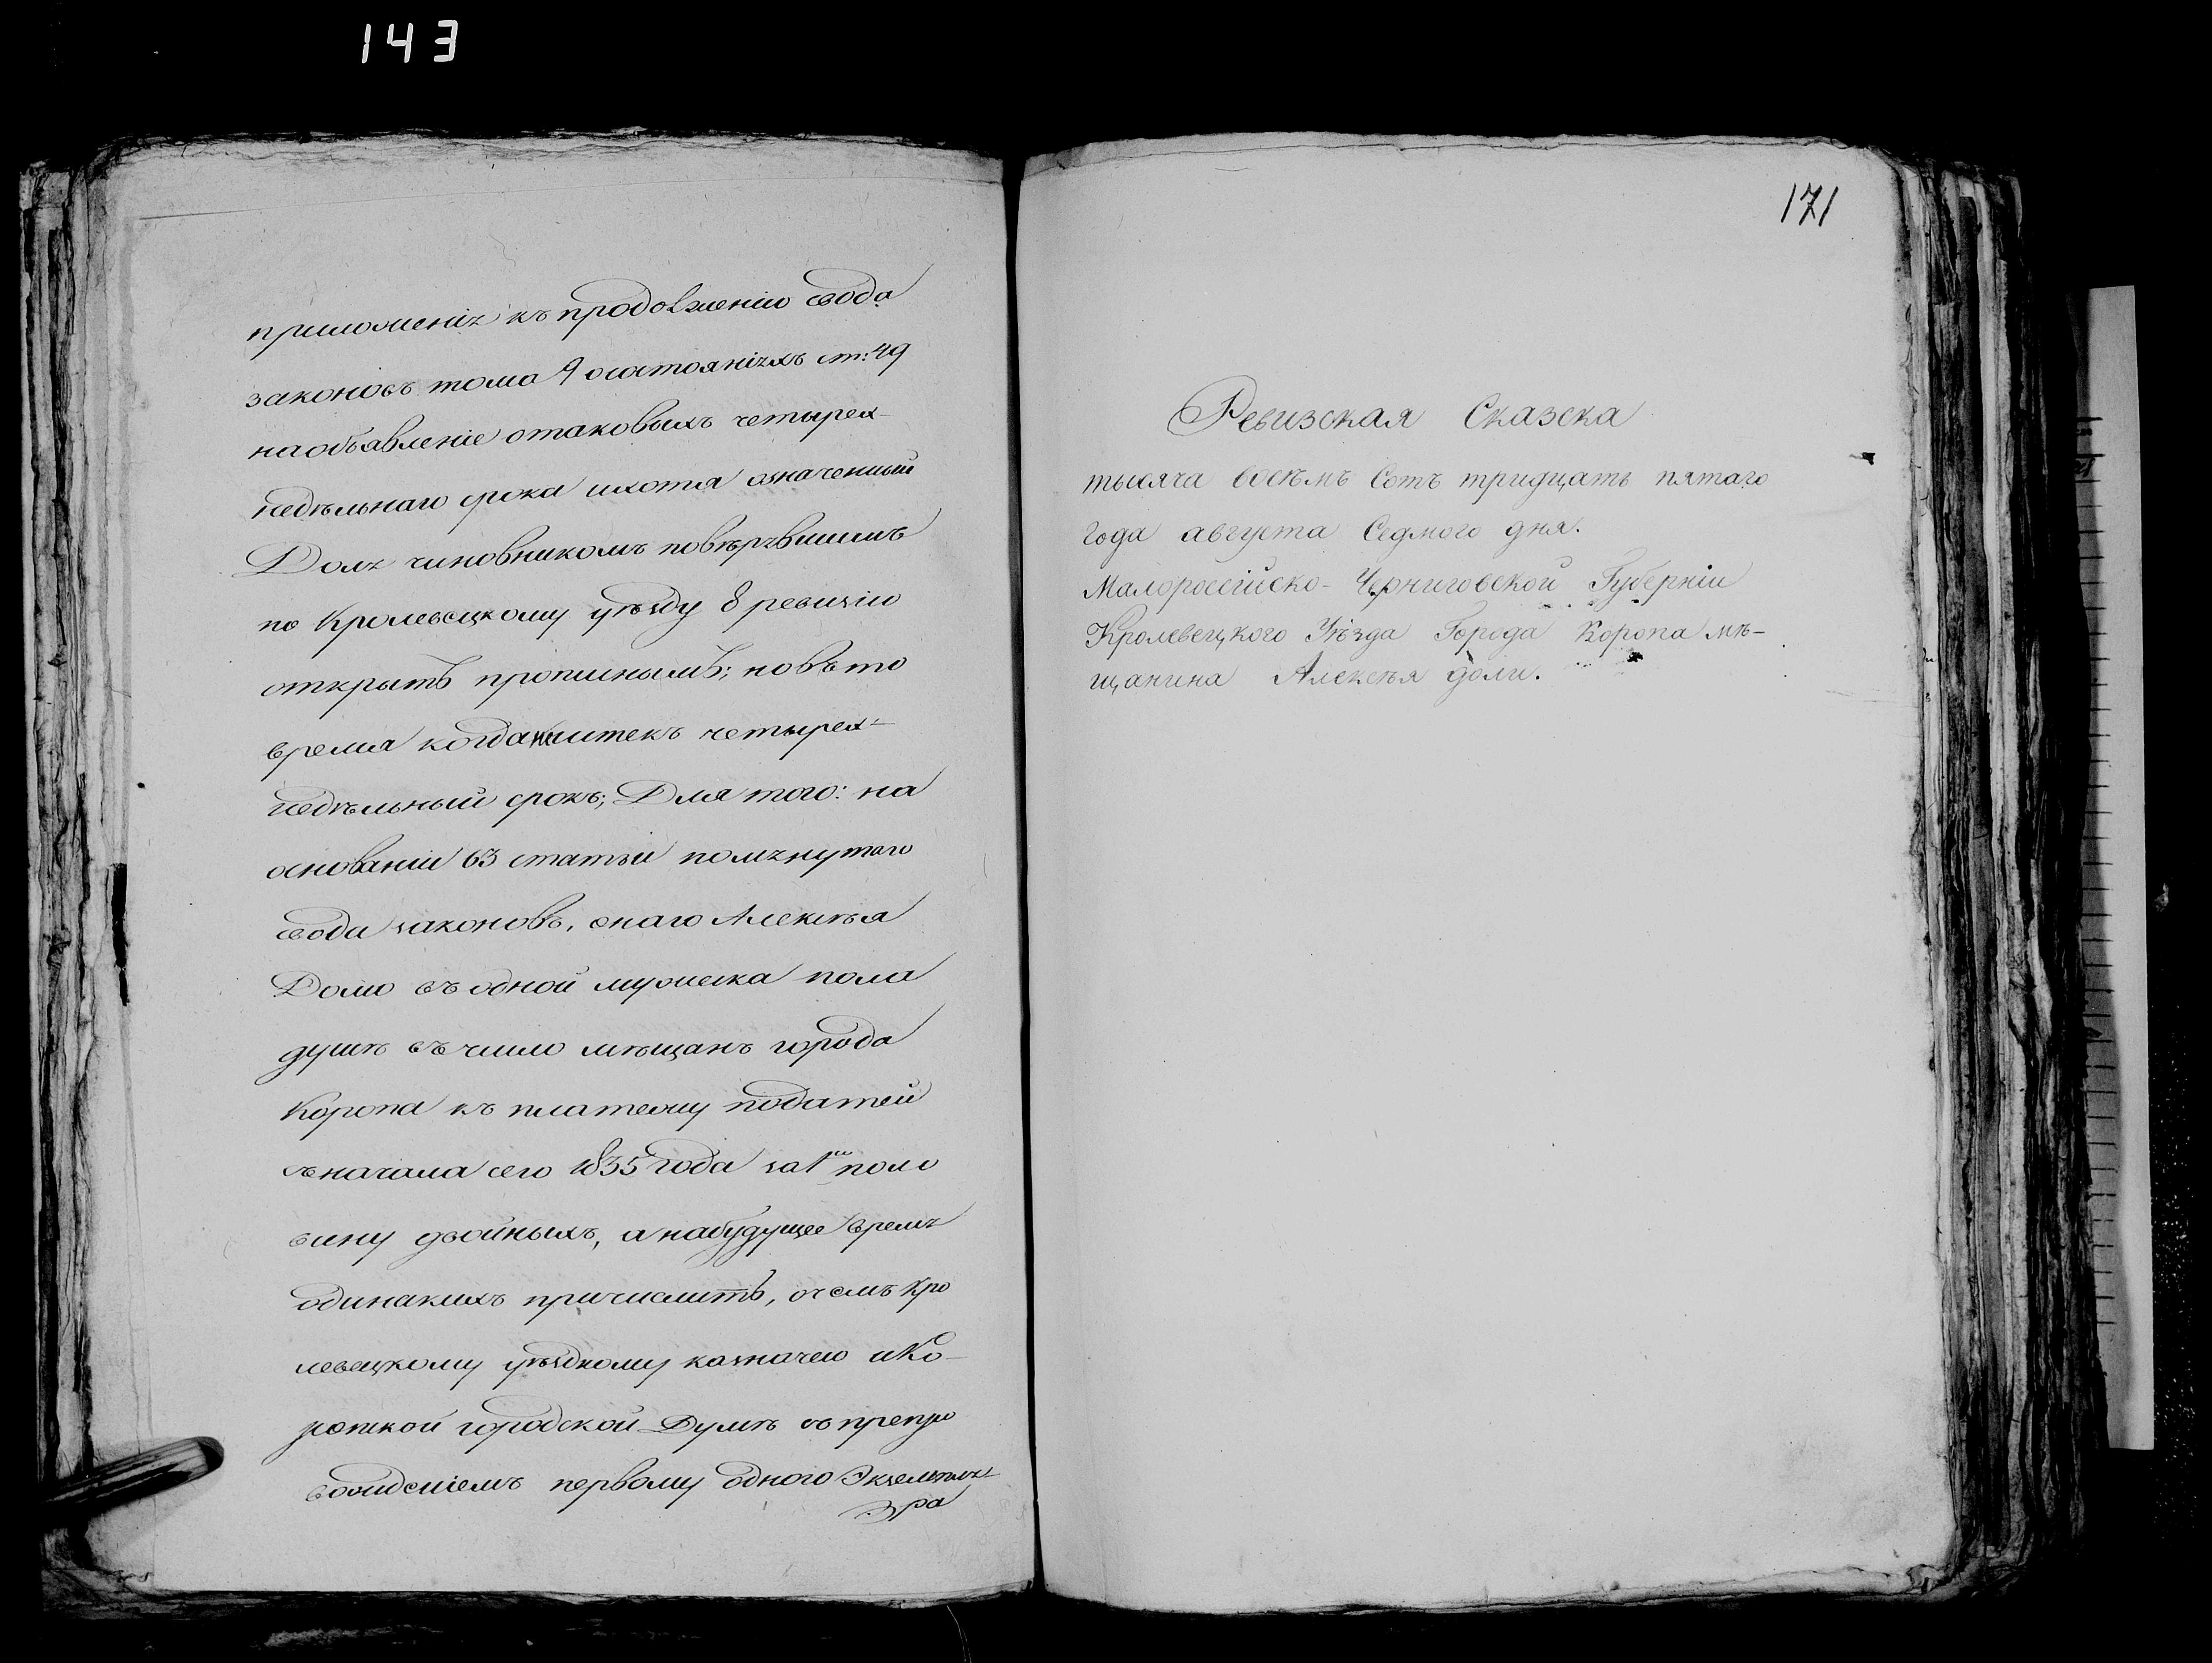 143
приложенія къ продолженію свода
законовъ тома 9 осостояніяхъ ст: 49
наобъявленіе отаковыхъ четырех-
недѣльнаго срока ихотя означенный
Доля чиновникомъ повѣрявшимъ
по Кролевецкому уѣзду 8 ревизію
открытъ прописнымъ; новъ то
время когда истекъ четырех-
недѣльный срокъ; Для того: на
основаніи 63 статьи помянутаго
свода законовъ, онаго Алексѣя
Долю въ одной мужеска пола
душѣ въ число мѣщанъ города
Коропа къ платежу податей
съ начала сего 1835 года за 1ю поло
вину двойныхъ, а на будущее время
одинакихъ причислить, о чемъ Кро
левецкому уѣздному казначею и Ко-
ропской городской Думѣ съ препро
вожденіемъ первому одного Экземпля-
ра
171
Ревизская Сказска
тысяча восѣмъ Сотъ тридцать пятаго
года августа Седмого дня.
Малороссійско-Черниговской Губерніи
Кролевецкого Уѣзда Города Коропа мѣ-
щанина Алексѣя доли.